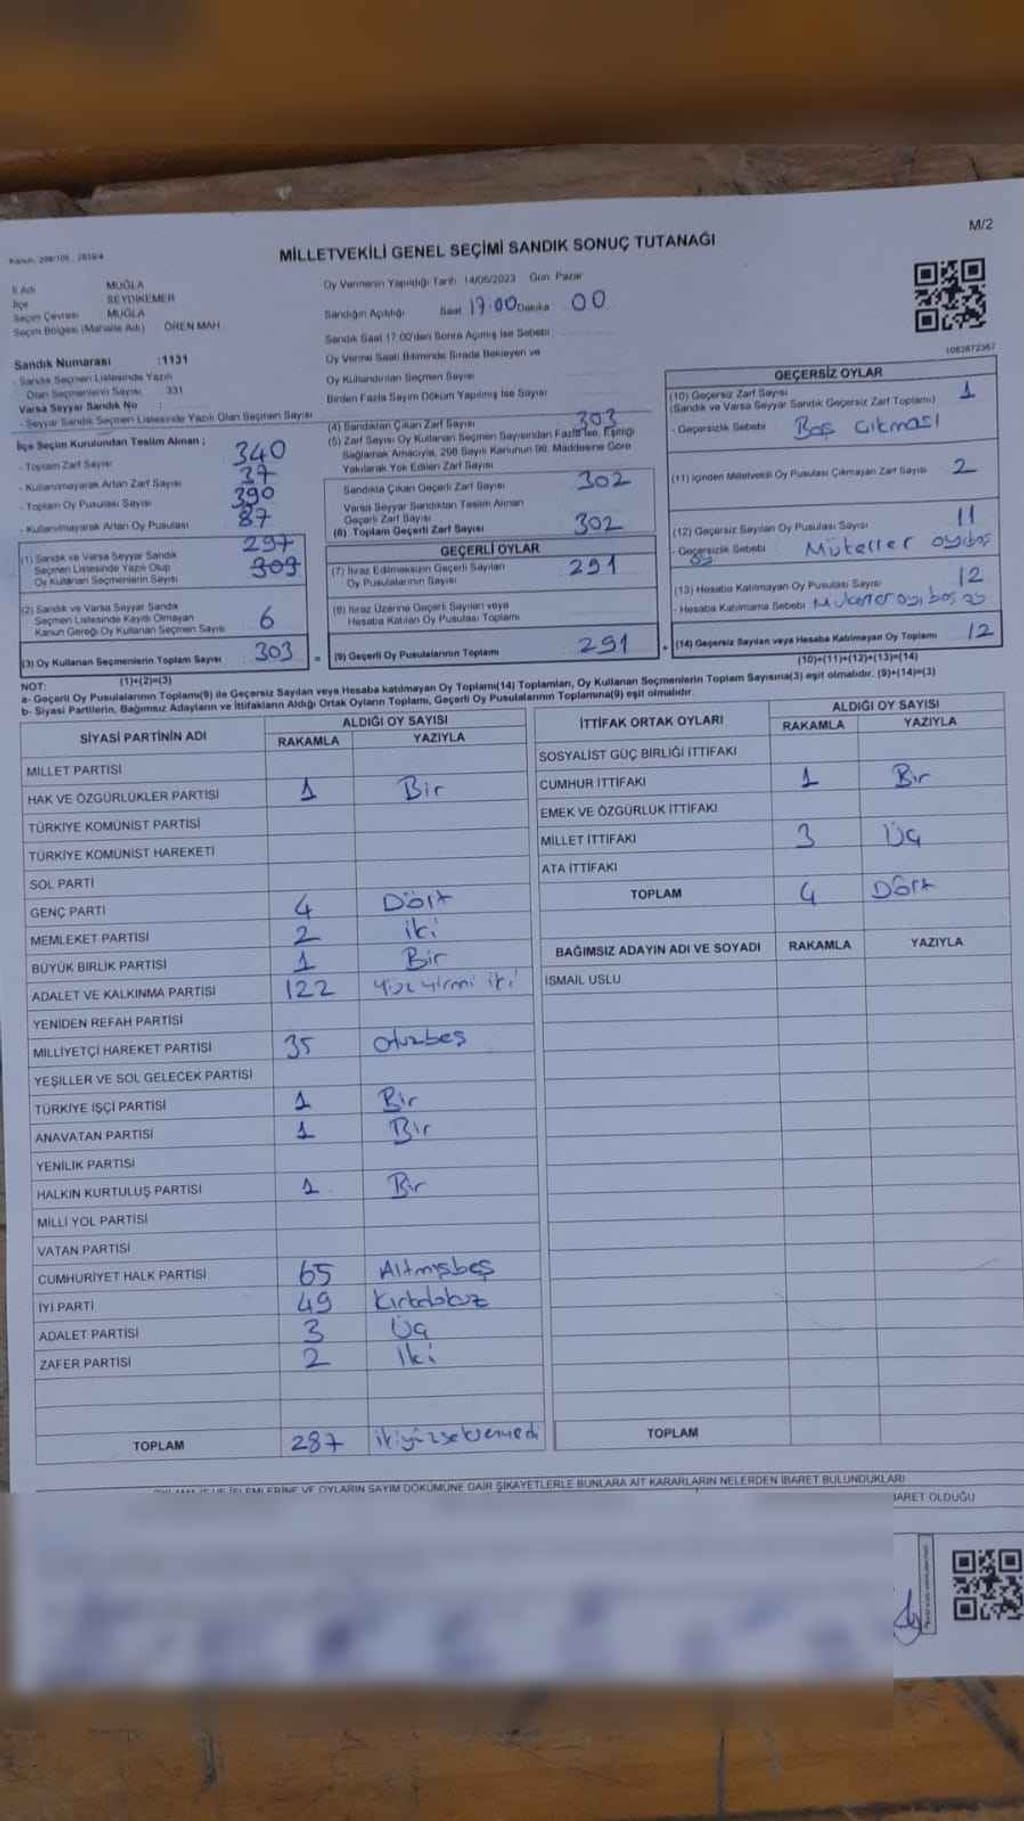 M/2
MİLLETVEKİLİ GENEL SEÇİMİ SANDIK SONUÇ TUTANAĞI
İl Adı MUĞLA
İlçe SEYDİKEMER
Seçim Çevresi MUĞLA
Seçim Bölgesi (Mahalle Adı) ÖREN MAH.
Sandık Numarası :1131
- Sandık Seçmen Listesinde Yazılı
Olan Seçmenlerin Sayısı 331
Varsa Seyyar Sandık No :
- Seyyar Sandık Seçmen Listesinde Yazılı Olan Seçmen Sayısı
İlçe Seçim Kurulundan Teslim Alınan ;
- Toplam Zarf Sayısı 340
- Kullanılmayarak Artan Zarf Sayısı 37
- Toplam Oy Pusulası Sayısı 390
- Kullanılmayarak Artan Oy Pusulası 87
(1) Sandık ve Varsa Seyyar Sandık 297
Seçmen Listesinde Yazılı Olup
Oy Kullanan Seçmenlerin Sayısı 303
(2) Sandık ve Varsa Seyyar Sandık
Seçmen Listesinde Kayıtlı Olmayan
Kanun Gereği Oy Kullanan Seçmen Sayısı 6
(3) Oy Kullanan Seçmenlerin Toplam Sayısı 303
(1)+(2)=(3)
Oy Vermenin Yapıldığı Tarih 14/05/2023 Gün Pazar
Sandığın Açıldığı Saat 17:00 Dakika 00
Sandık Saat 17.00'den Sonra Açılmış İse Sebebi
Oy Verme Saati Bitiminde Sırada Bekleyen ve
Oy Kullandırılan Seçmen Sayısı
Birden Fazla Sayım Döküm Yapılmış İse Sayısı
(4) Sandıktan Çıkan Zarf Sayısı 303
(5) Zarf Sayısı Oy Kullanan Seçmen Sayısından Fazla İse, Eşitliği
Sağlamak Amacıyla, 298 Sayılı Kanunun 98. Maddesine Göre
Yakılarak Yok Edilen Zarf Sayısı
Sandıkta Çıkan Geçerli Zarf Sayısı 302
Varsa Seyyar Sandıktan Teslim Alınan
Geçerli Zarf Sayısı
(6) Toplam Geçerli Zarf Sayısı 302
GEÇERLİ OYLAR
(7) İtiraz Edilmeksizin Geçerli Sayılan
Oy Pusulalarının Sayısı 291
(8) İtiraz Üzerine Geçerli Sayılan veya
Hesaba Katılan Oy Pusulası Toplamı
(9) Geçerli Oy Pusulalarının Toplamı 291
1082872367
GEÇERSİZ OYLAR
(10) Geçersiz Zarf Sayısı 1
(Sandık ve Varsa Seyyar Sandık Geçersiz Zarf Toplamı)
- Geçersizlik Sebebi Boş Çıkması
(11) İçinden Milletvekili Oy Pusulası Çıkmayan Zarf Sayısı 2
(12) Geçersiz Sayılan Oy Pusulası Sayısı 11
- Geçersizlik Sebebi
(13) Hesaba Katılmayan Oy Pusulası Sayısı 12
- Hesaba Katılmama Sebebi
(14) Geçersiz Sayılan veya Hesaba Katılmayan Oy Toplamı 12
(10)+(11)+(12)+(13)=(14)
NOT:
a- Geçerli Oy Pusulalarının Toplamı(9) ile Geçersiz Sayılan veya Hesaba katılmayan Oy Toplamı(14) Toplamları, Oy Kullanan Seçmenlerin Toplam Sayısına(3) eşit olmalıdır. (9)+(14)=(3)
b- Siyasi Partilerin, Bağımsız Adayların ve İttifakların Aldığı Ortak Oyların Toplamı, Geçerli Oy Pusulalarının Toplamına(9) eşit olmalıdır.
SİYASİ PARTİNİN ADI ALDIĞI OY SAYISI
RAKAMLA YAZIYLA
MİLLET PARTİSİ
HAK VE ÖZGÜRLÜKLER PARTİSİ 1 Bir
TÜRKİYE KOMÜNİST PARTİSİ
TÜRKİYE KOMÜNİST HAREKETİ
SOL PARTİ
GENÇ PARTİ 4 Dört
MEMLEKET PARTİSİ 2 iki
BÜYÜK BİRLİK PARTİSİ 1 Bir
ADALET VE KALKINMA PARTİSİ 122 Yüz yirmi iki
YENİDEN REFAH PARTİSİ
MİLLİYETÇİ HAREKET PARTİSİ 35 Otuzbeş
YEŞİLLER VE SOL GELECEK PARTİSİ
TÜRKİYE İŞÇİ PARTİSİ 1 Bir
ANAVATAN PARTİSİ 1 Bir
YENİLİK PARTİSİ
HALKIN KURTULUŞ PARTİSİ 1 Bir
MİLLİ YOL PARTİSİ
VATAN PARTİSİ
CUMHURİYET HALK PARTİSİ 65 Altmışbeş
İYİ PARTİ 49 Kırkdokuz
ADALET PARTİSİ 3 Üç
ZAFER PARTİSİ 2 İki
TOPLAM 287 ikiyüzseksenyedi
İTTİFAK ORTAK OYLARI ALDIĞI OY SAYISI
RAKAMLA YAZIYLA
SOSYALİST GÜÇ BİRLİĞİ İTTİFAKI
CUMHUR İTTİFAKI 1 Bir
EMEK VE ÖZGÜRLÜK İTTİFAKI
MİLLET İTTİFAKI 3 Üç
ATA İTTİFAKI
TOPLAM 4 Dört
BAĞIMSIZ ADAYIN ADI VE SOYADI RAKAMLA YAZIYLA
İSMAİL USLU
TOPLAM
OYLARIN SAYIM DÖKÜMÜNE DAİR ŞİKAYETLERLE BUNLARA AİT KARARLARIN NELERDEN İBARET BULUNDUKLARI
OLDUĞU